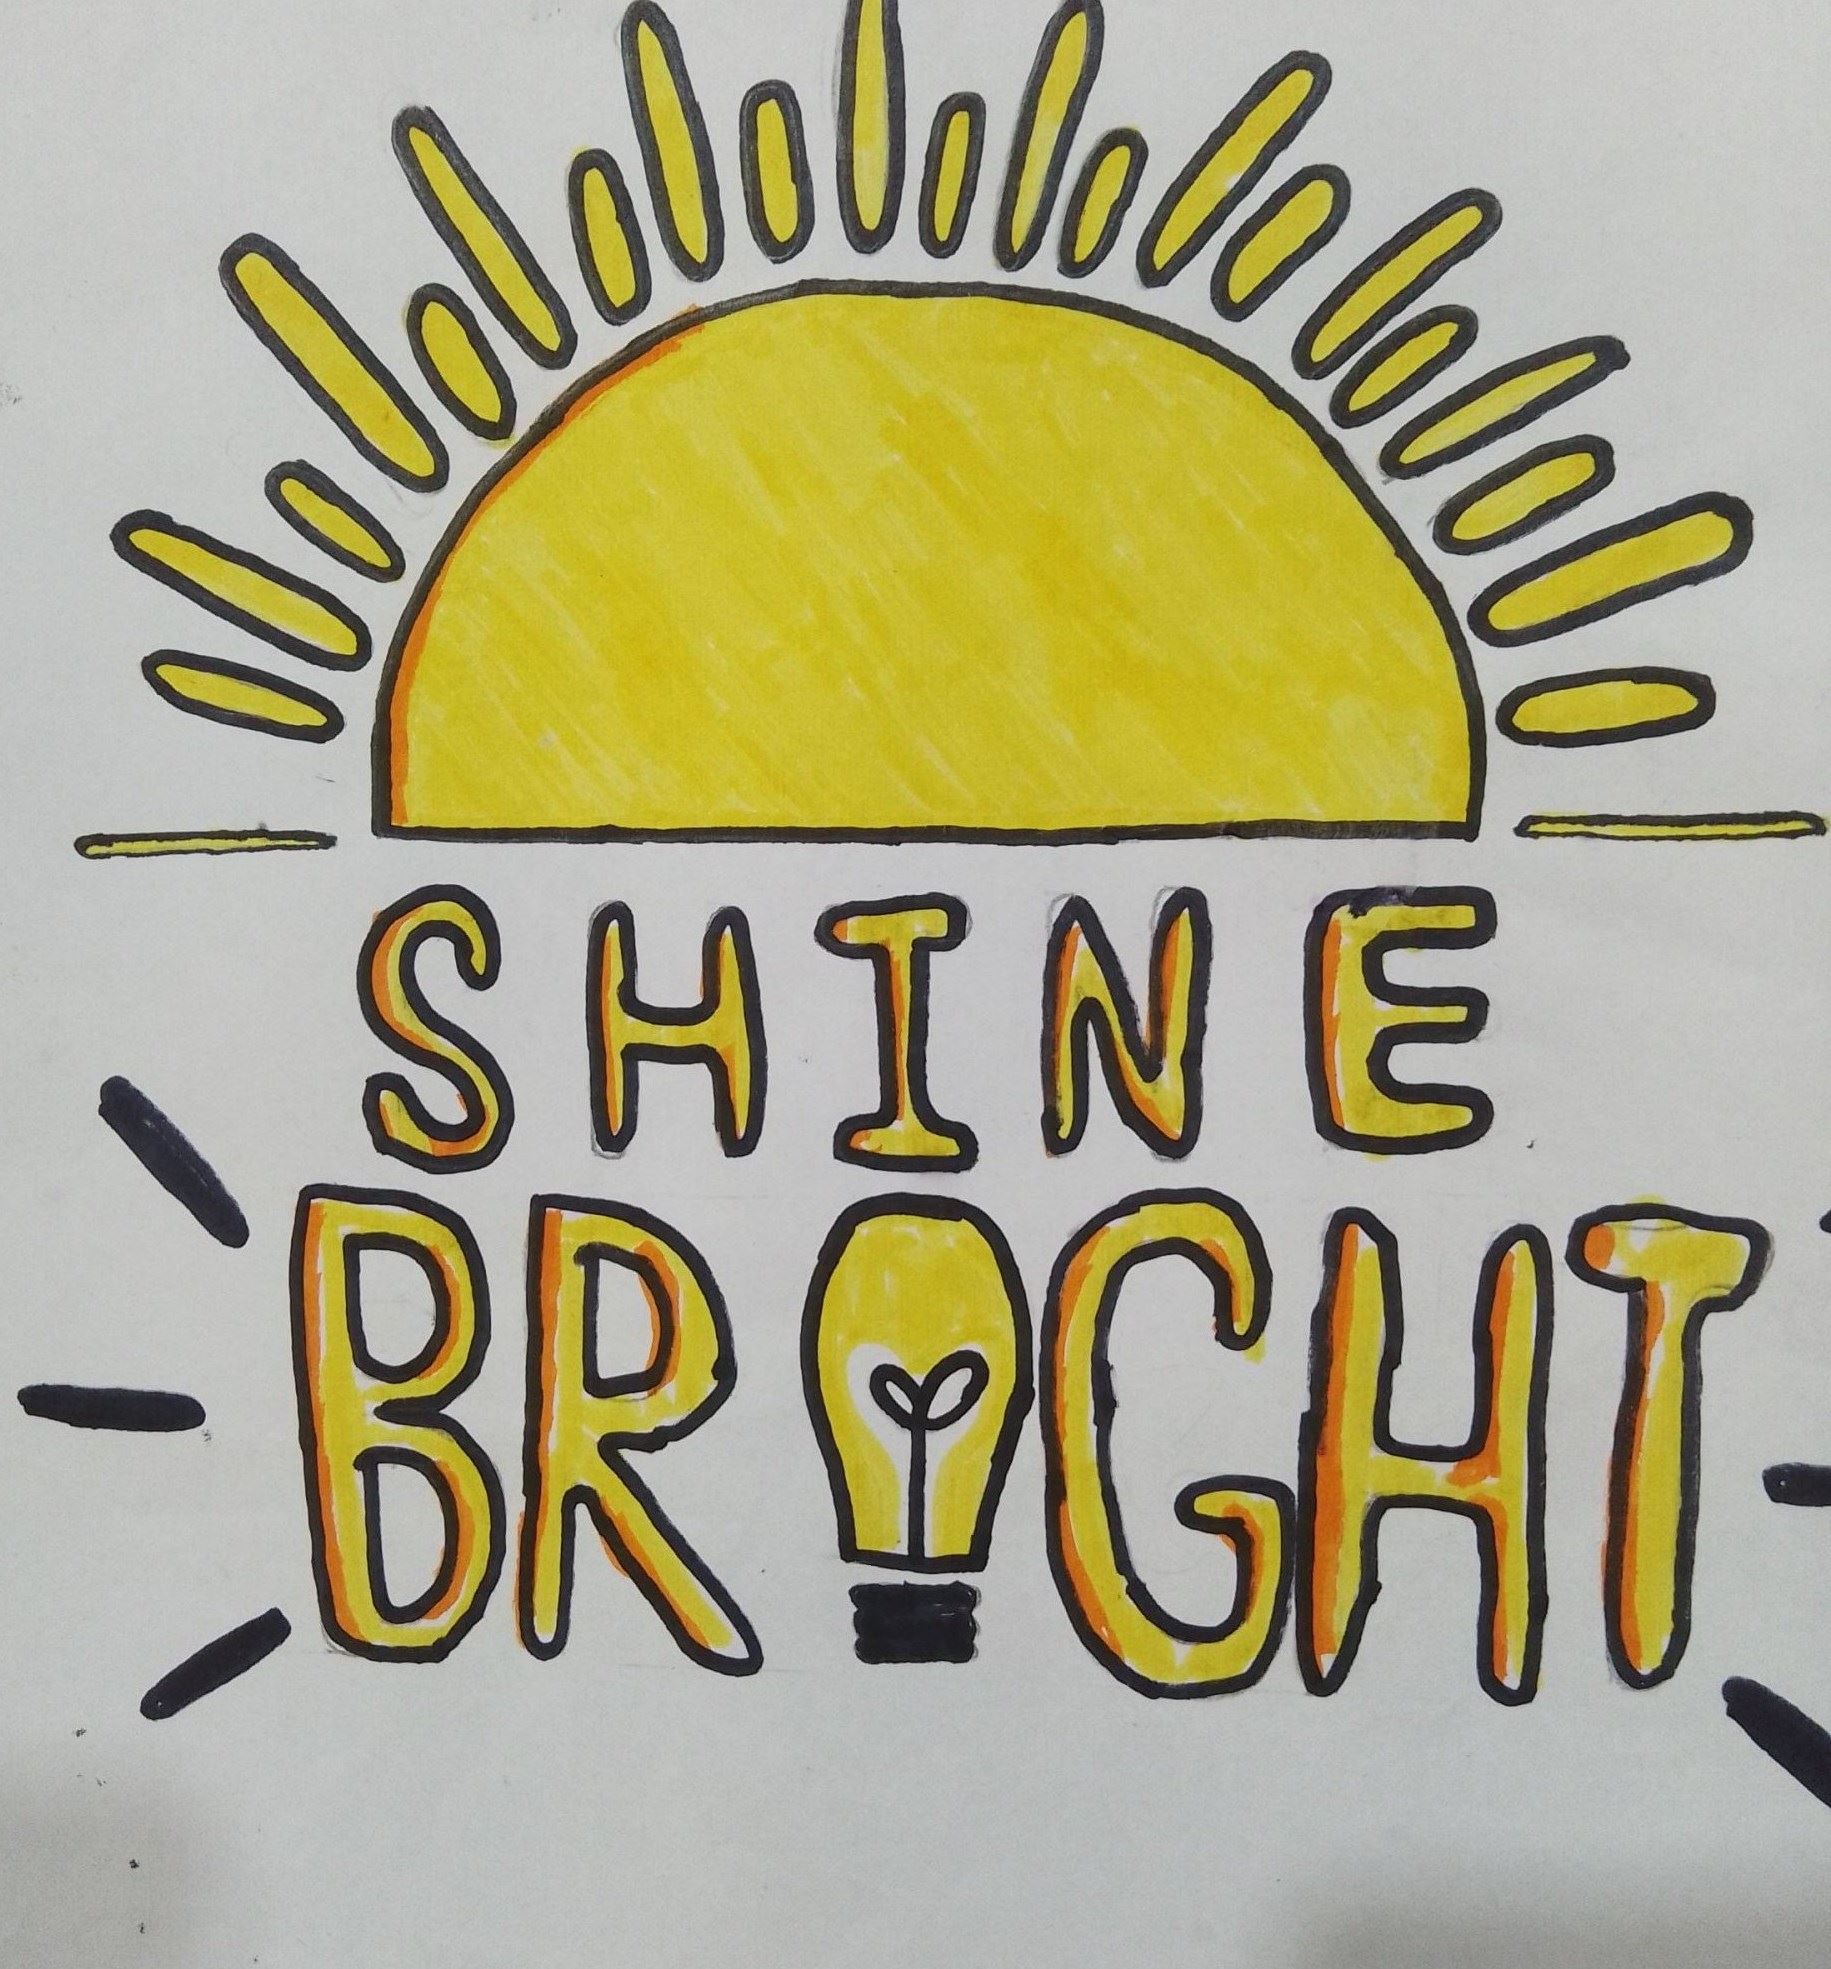 SHINE
BRIGHT